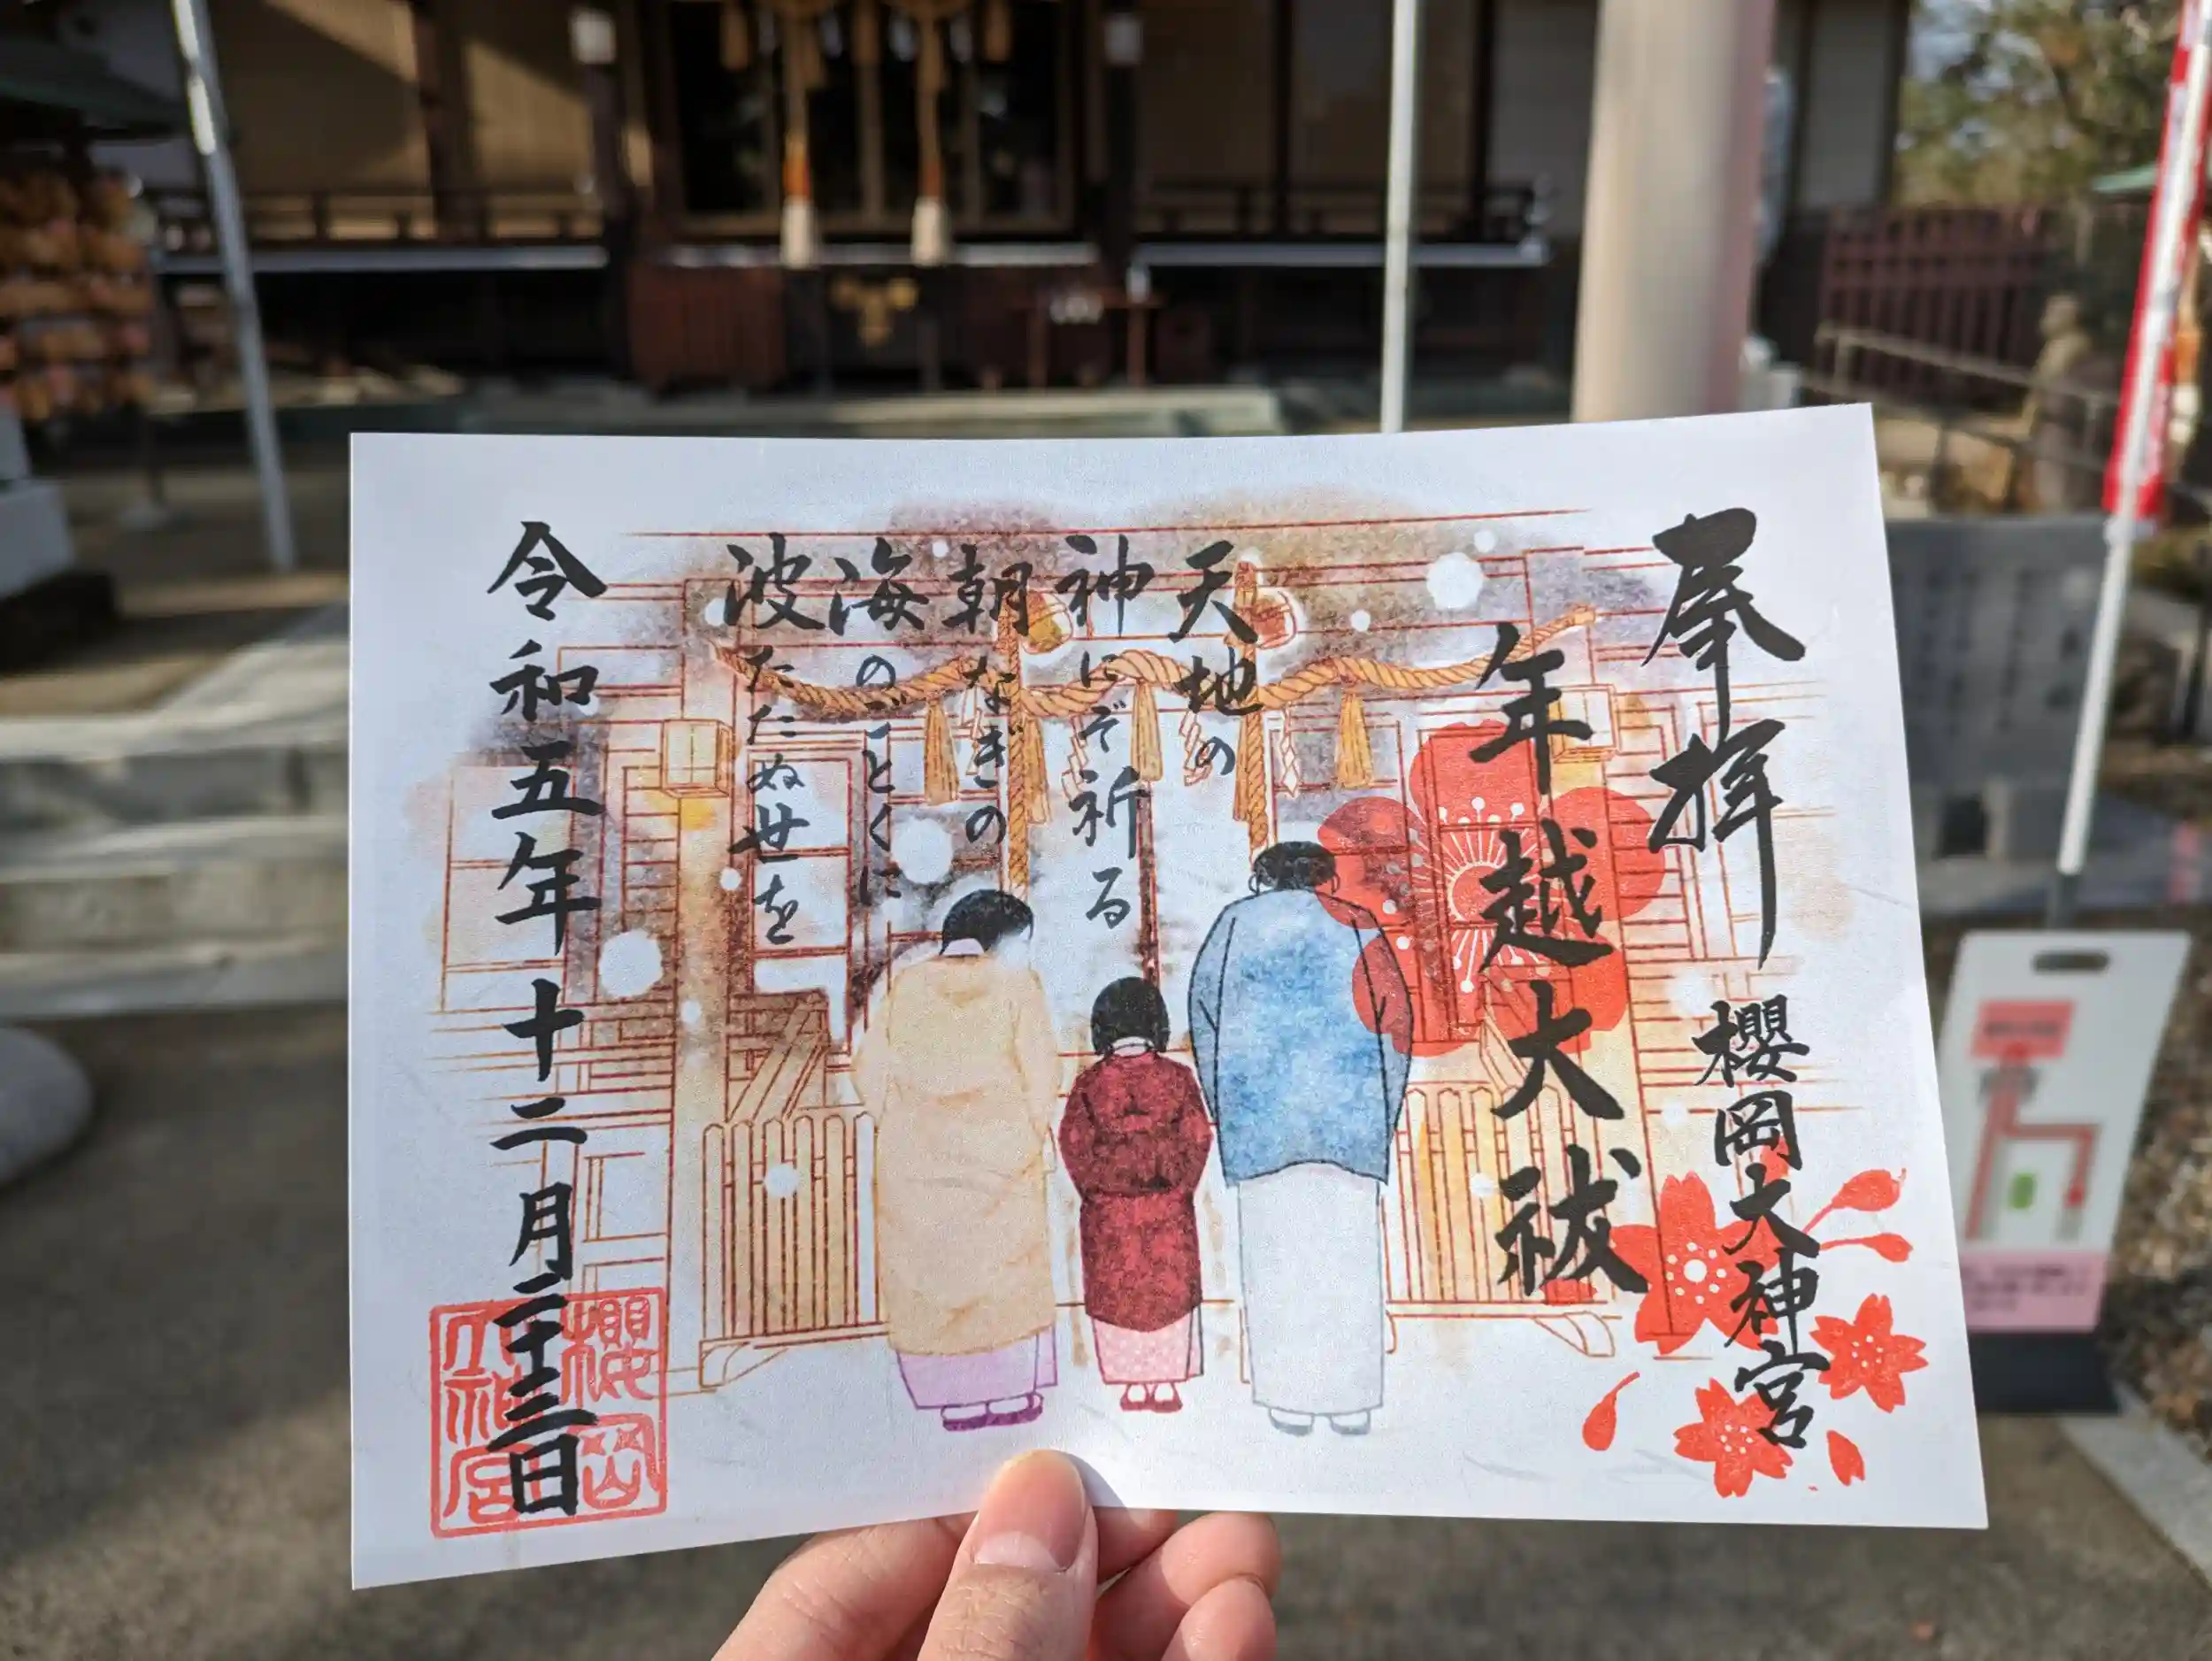 奉拝
櫻岡大神宮
年越大祓
天地の
神にぞ祈る
朝なぎの
海のごとくに
波たたぬ世を
令和五年十二月二十三日
櫻岡
大神宮